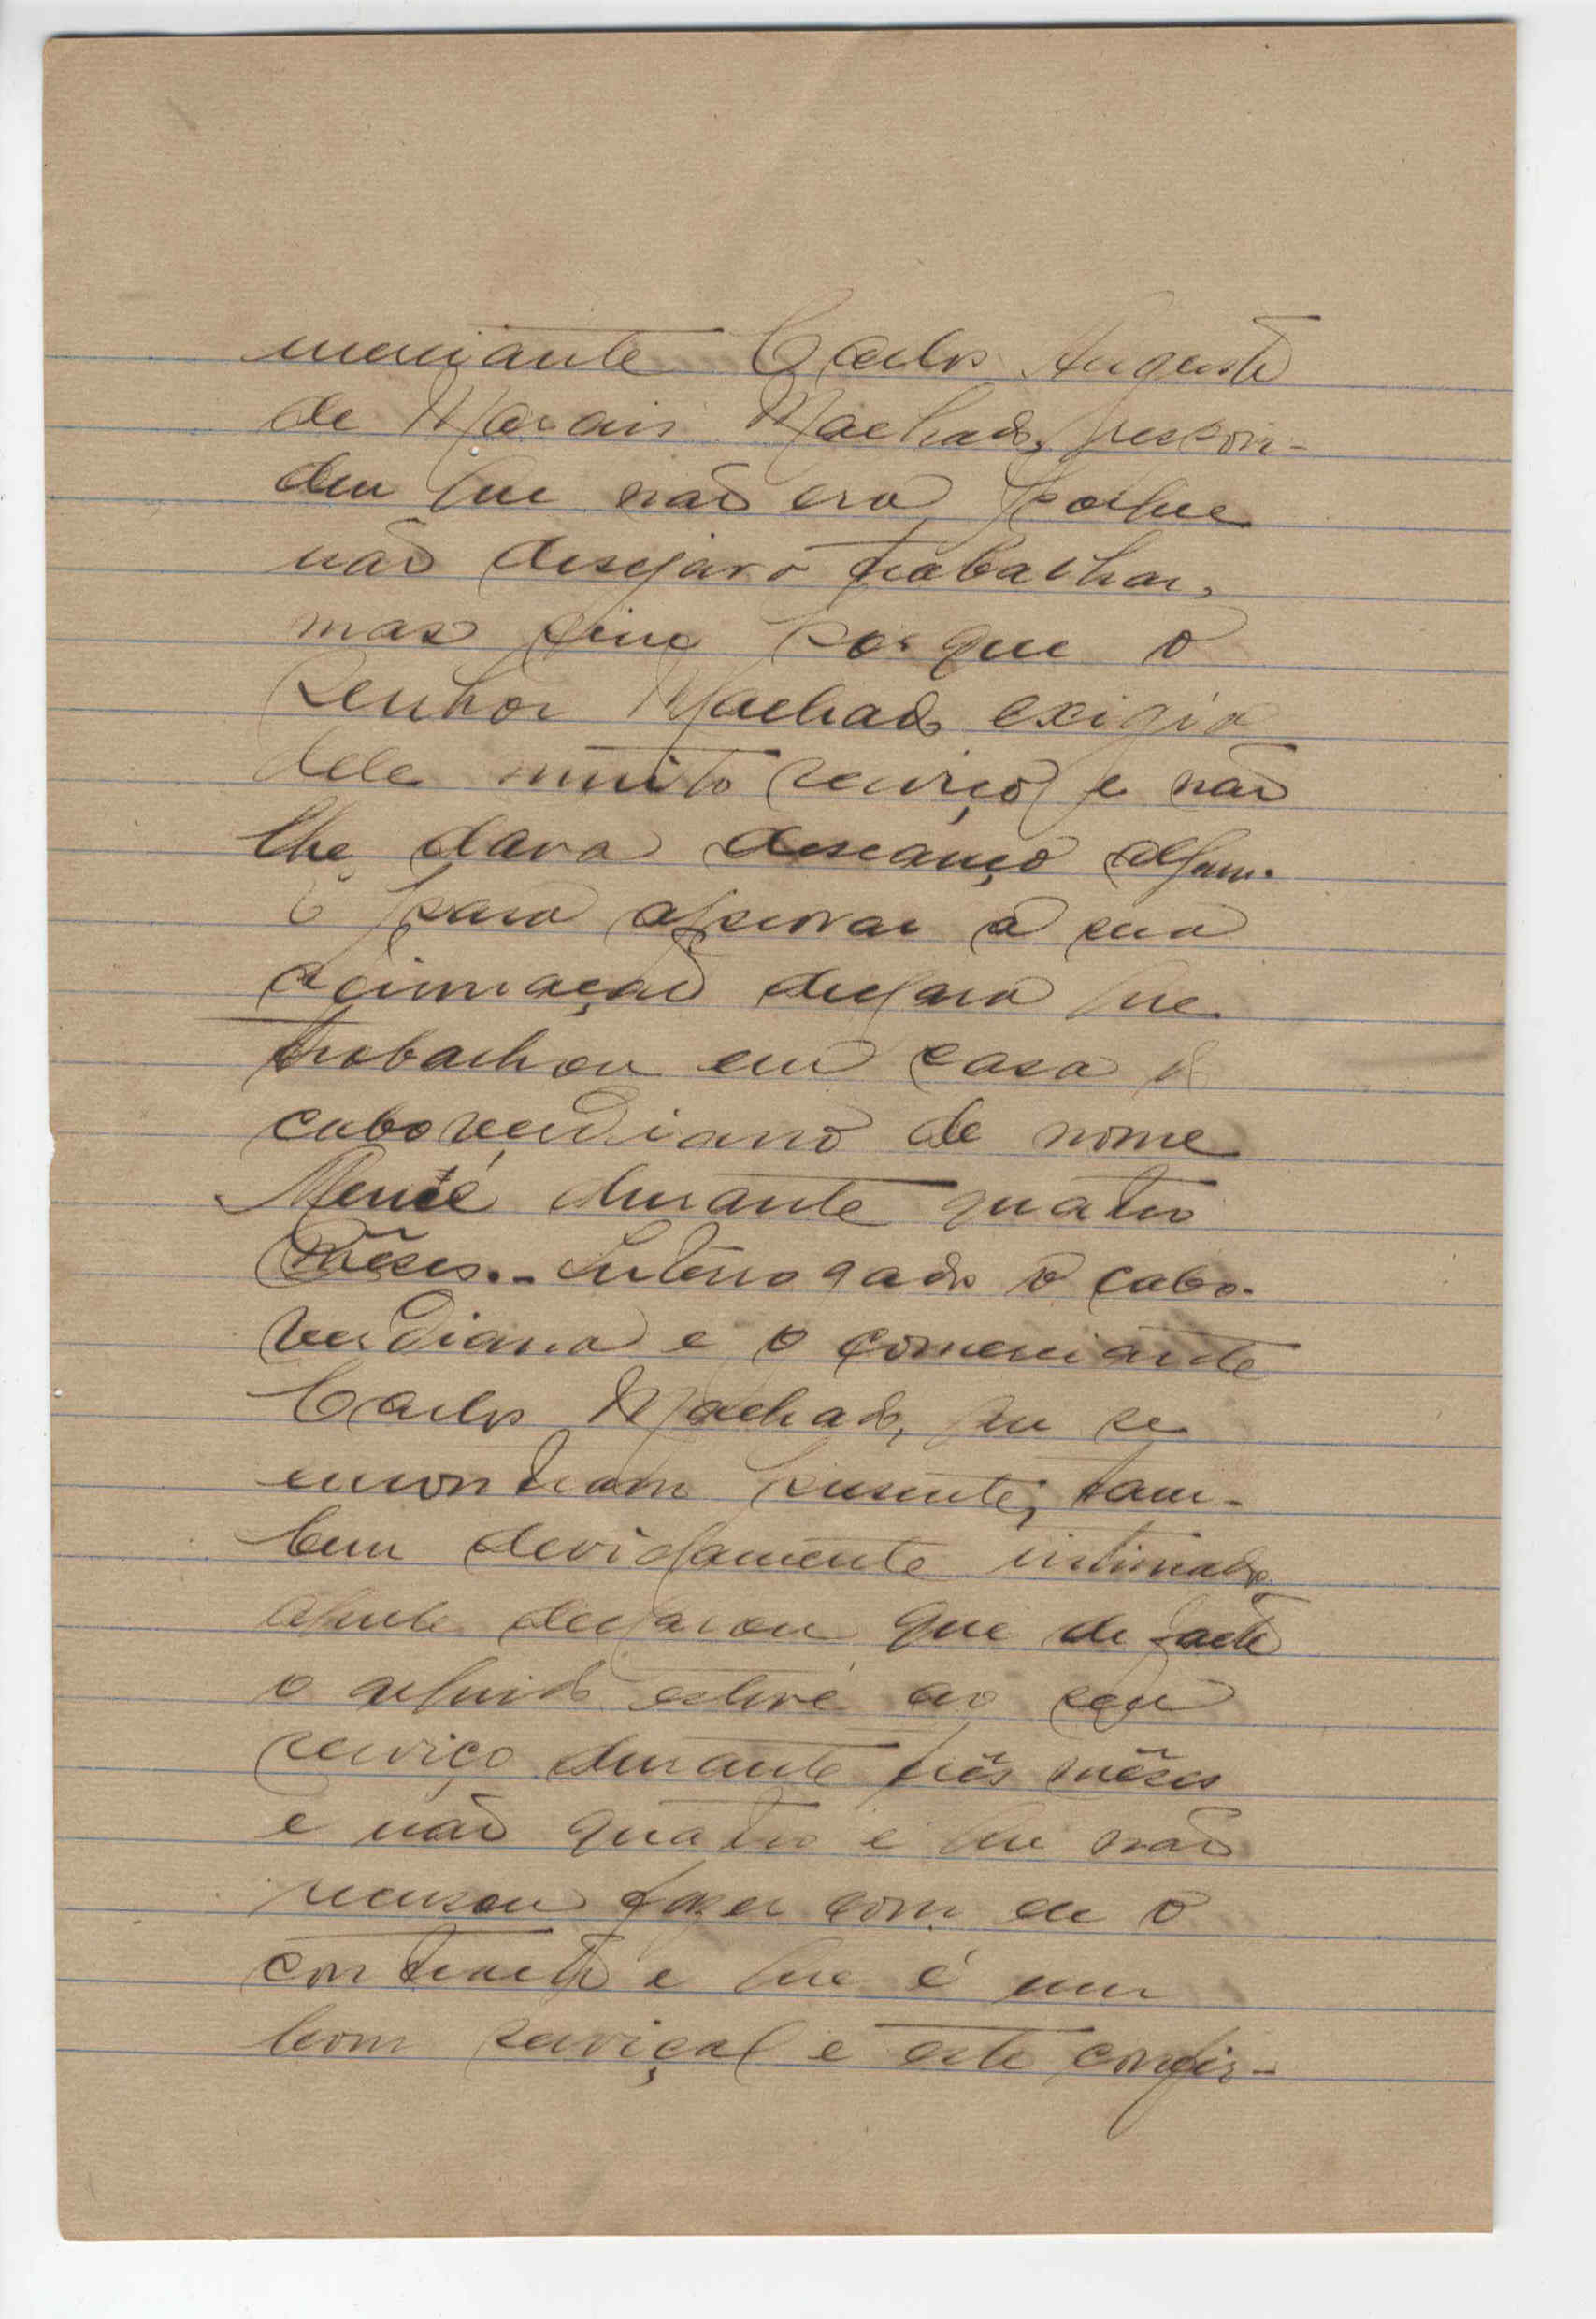 merciante Carlos Augusto
de Morais Machado, respon-
deu que não era porque
não desejava trabalhar,
mas sim porque o
Senhor Machado exigia
dele muito serviço e não
lhe dava descanço algum.
E para aprovar a sua
afirmação declara que
trabalhou em casa do
caboverdiano de nome
durante quatro
mêses.- Interrogado o cabo-
verdiano e o comerciante
Carlos Machado, que se
encontram presente, tam-
bem devidamente intimado
aquele declarou que de facto
o arguido esteve ao seu
serviço durante três mêses
e não quatro e que não
recusou fazer com ele o
contracto e que é um
bom serviçal e este confir-